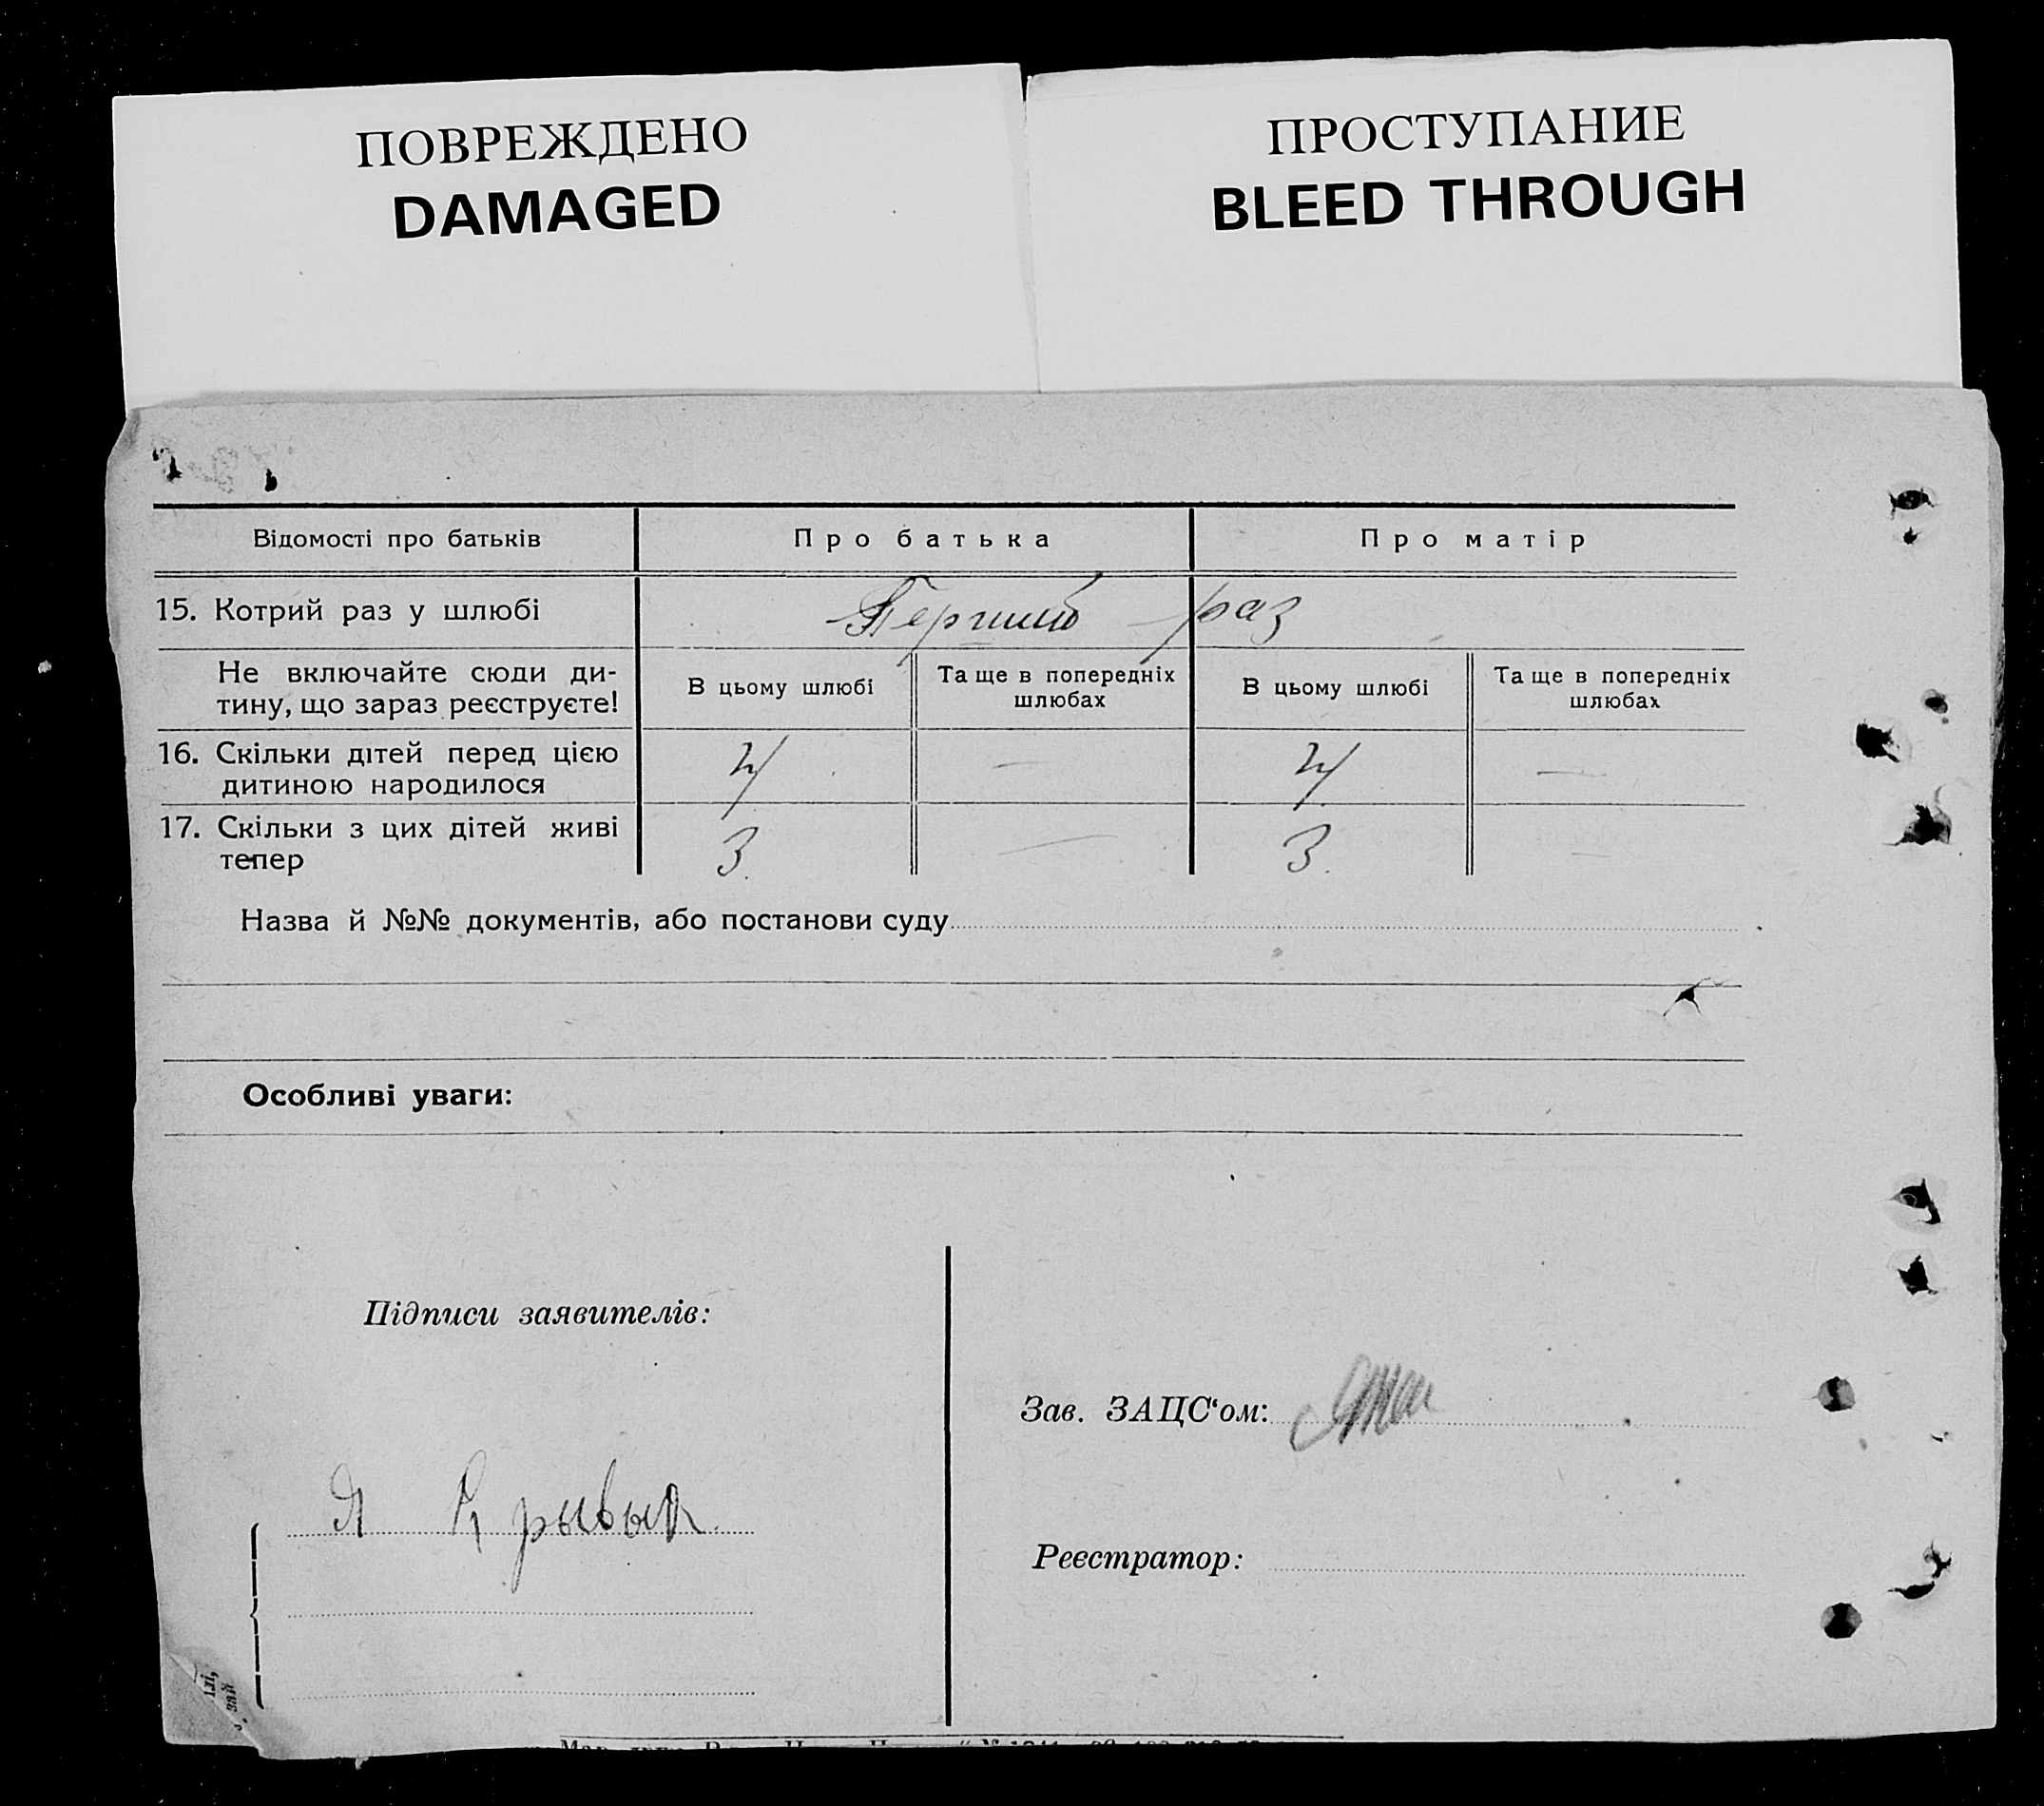 ПОВРЕЖДЕНО
DAMAGED
ПРОСТУПАНИЕ
BLEED THROUGH
Відомості про батьків Про батька Про матір
15. Котрий раз у шлюбі Перший раз
Не включайте сюди ди-
тину, що зараз реєструєте!
В цьому шлюбі
Та ще в попередніх
шлюбах
В цьому шлюбі
Та ще в попередніх
шлюбах
16. Скільки дітей перед цією
дитиною народилося
4 — 4 —
17. Скільки з цих дітей живі
тепер
3. — 3. —
Назва й №№ документів, або постанови суду
Особливі уваги:
Підписи заявителів:
Я Крывык
Зав. ЗАЦС‘ом:
Реєстратор: